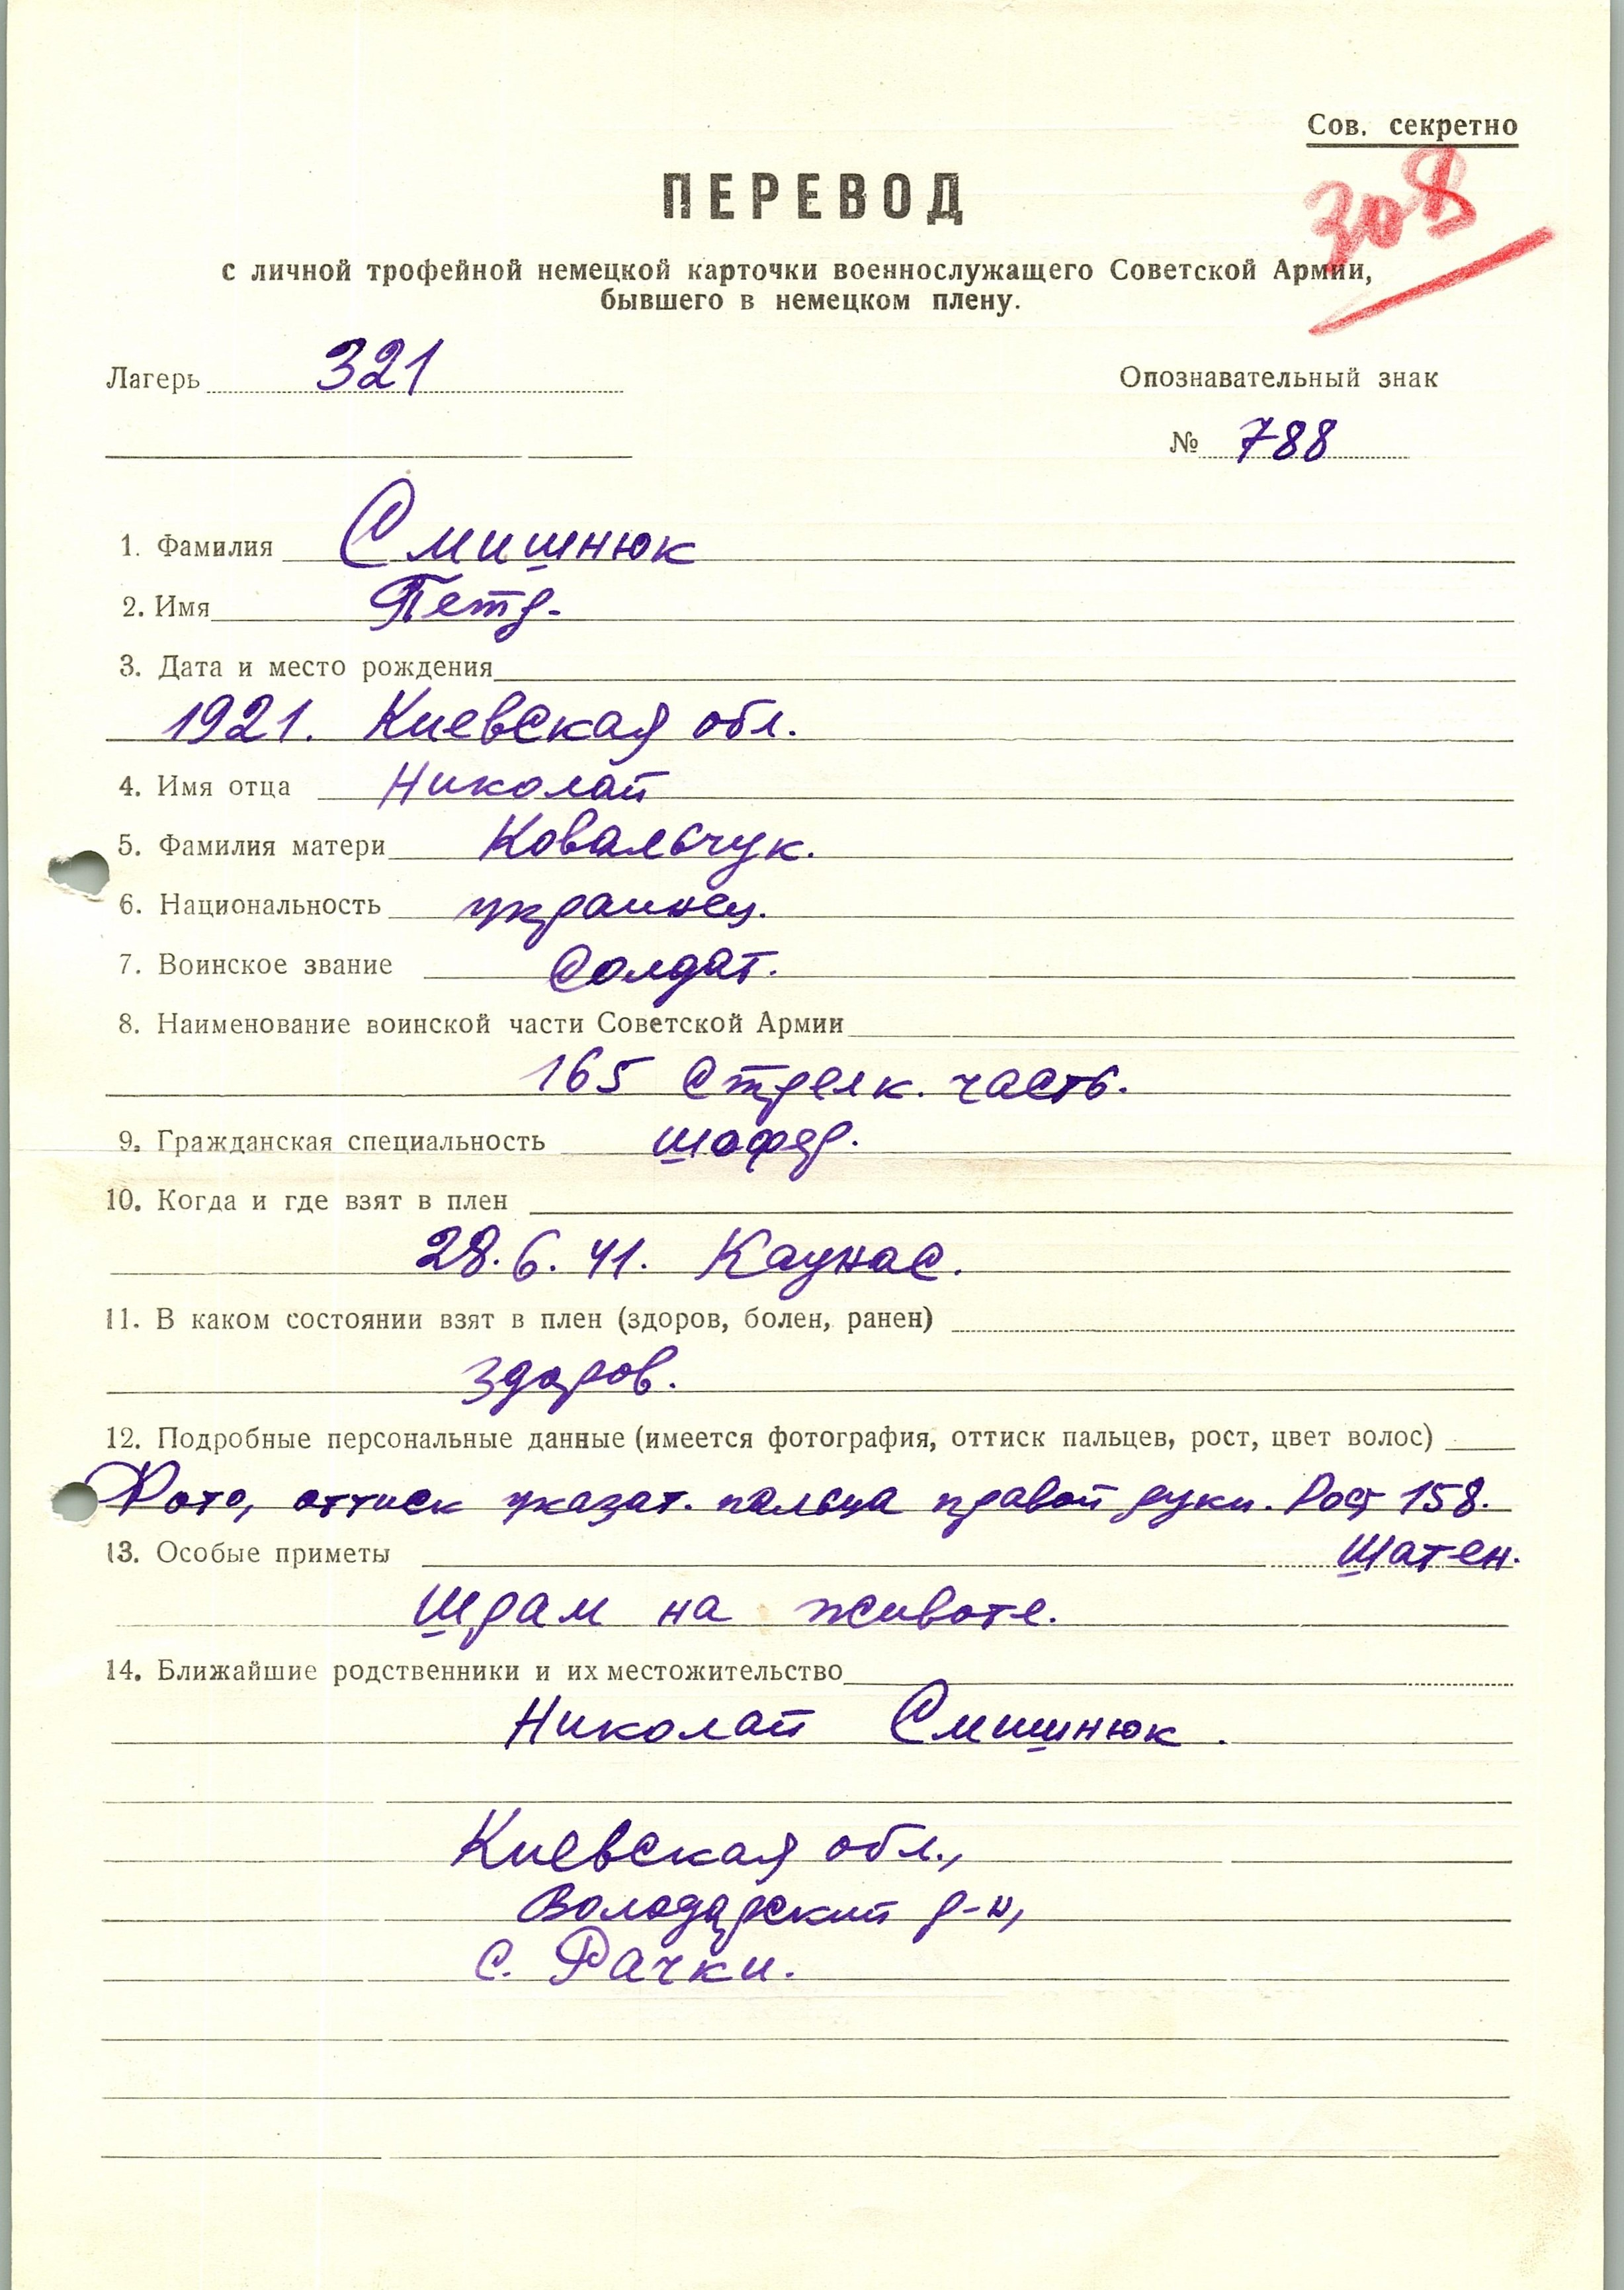 Сов. секретно
308
ПЕРЕВОД
с личной трофейной немецкой карточки военнослужащего Советской Армии,
бывшего в немецком плену.
Лагерь 321 Опознавательный знак
№ 788
1. Фамилия Смишнюк
2. Имя Петр.
3. Дата и место рождения
1921. Киевская обл.
4. Имя отца Николай
5. Фамилия матери Ковальчук.
6. Национальность украинец.
7. Воинское звание Солдат.
8. Наименование воинской части Советской Армии
165 Стрелк. часть.
9. Гражданская специальность шофер.
10. Когда и где взят в плен
28.6.41. Каунас.
11. В каком состоянии взят в плен (здоров, болен, ранен)
здоров.
12. Подробные персональные данные (имеется фотография, оттиск пальцев, рост, цвет волос)
Фото, оттиск указат. пальца правой руки. Рост 158.
13. Особые приметы Шатен.
Шрам на животе.
14. Ближайшие родственники и их местожительство
Николай Смишнюк.
Киевская обл.,
Володарский р-н,
с. Рачки.